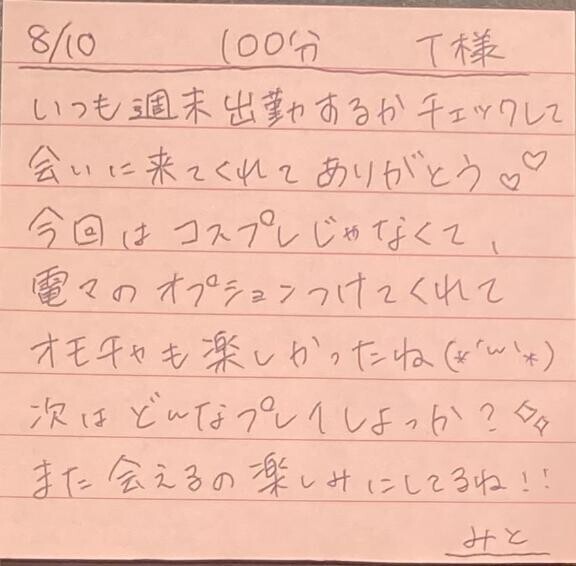 8/10 100分 T様
いつも週末出勤するかチェックして
会いに来てくれてありがとう♡♡
今回はコスプレじゃなくて、
電マのオプションつけてくれて
オモチャも楽しかったね(*´ω`*)
次はどんなプレイしよっか？✧✧
また会えるの楽しみにしてるね!!
みと